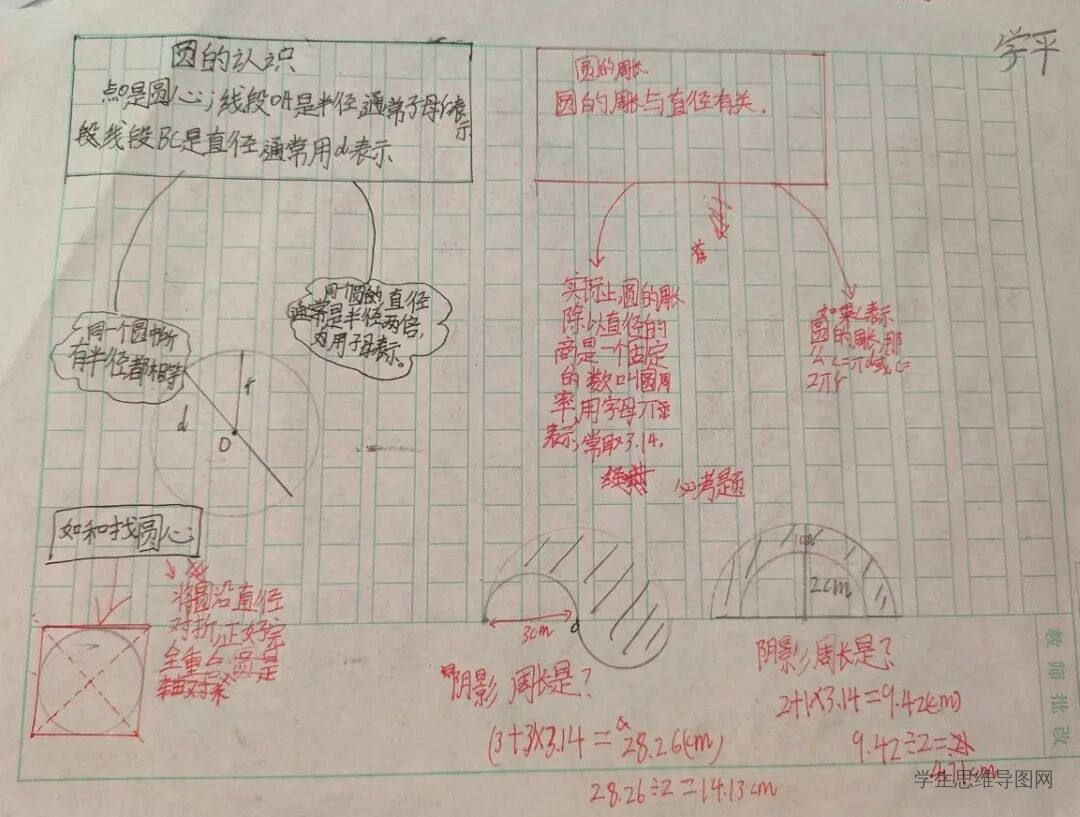 学平
圆的认识
点O是圆心；线段OA是半径通常子母r表示
段线段BC是直径通常用d表示
同一个圆中所
有半径都相等
同一个圆的直径
通常是半径两倍，
为用子母表示。
r
d
O
如和找圆心
将圆沿直径
对折，正好完
全重合圆是
轴对称
圆的周长
圆的周长与直径有关.
实际上，圆的周长
除以直径的
商是一个固定
的数叫圆周
率，用字母π
表示，常取3.14。
如果C表示
圆的周长，那
么C=πd或C=
2πr
经典
必考题
3cm
阴影周长是？
(3+3)×3.14=28.26(cm)
28.26÷2=14.13cm
1cm
2cm
阴影周长是？
2+1×3.14=9.42(cm)
9.42÷2=
4.71cm
教师批改
学生思维导图网